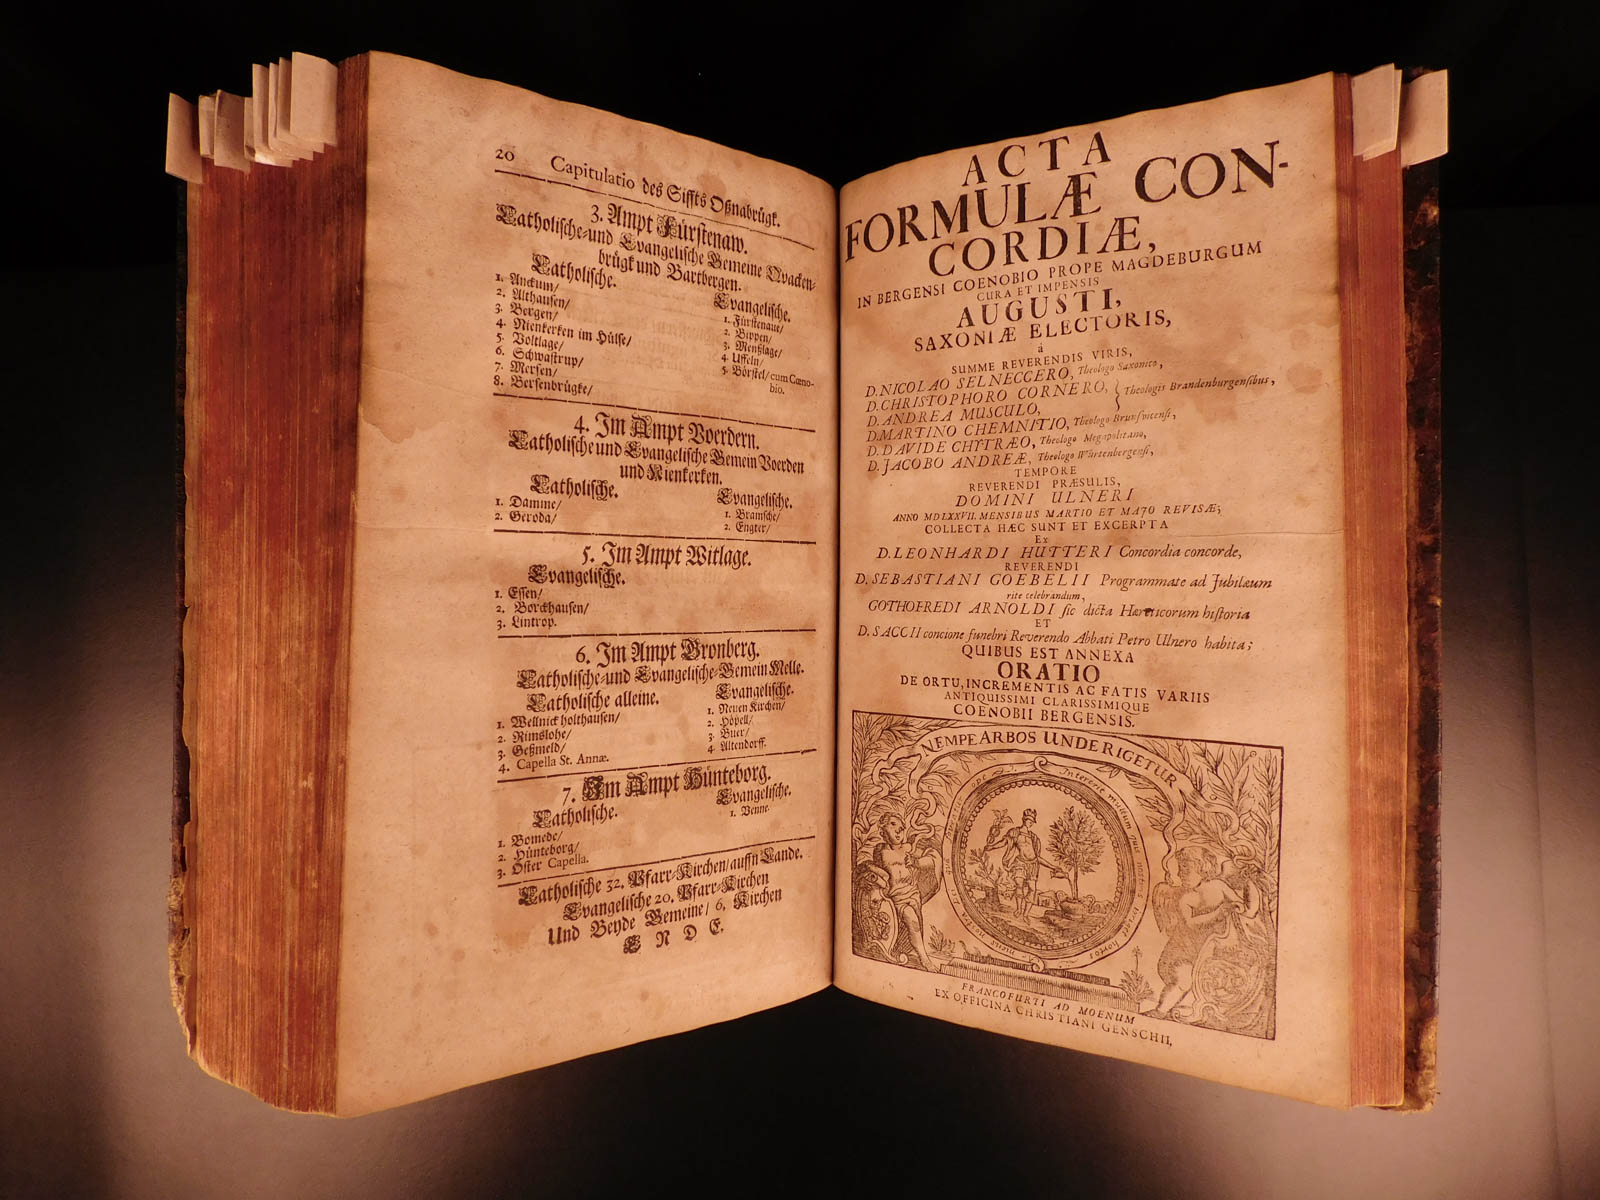 20 Capitulatio des Stiffts Oßnabrügk.
3. Ampt Fürstenaw.
Catholische-und Evangelische Gemeine Qvacken-
brügk und Bartbergen.
Catholische.
1. Anckum/
2. Althausen/
3. Bergen/
4. Nienkerken im Hülse/
5. Voltlage/
6. Schwastrup/
7. Mersen/
8. Bersenbrügke/
Evangelische.
1. Fürstenaue/
2. Bippen/
3. Menßlage/
4 Uffeln/
5. Börstel/ cum Cœno-
bio.
4. Im Ampt Voerdern.
Catholische und Evangelische Gemein Voerden
und Nienkerken.
Catholische.
1. Damme/
2. Geroda/
Evangelische.
1. Bramsche/
2. Engter/
5. Im Ampt Witlage.
Evangelische.
1. Essen/
2. Borckhausen/
3. Lintrop.
6. Im Ampt Gronberg.
Catholische-und Evangelische-Gemein Melle.
Catholische alleine.
1. Wellnick holthausen/
2. Rimslohe/
3. Geßmeld/
4. Capella St. Annæ.
Evangelische.
1. Neuen Kirchen/
2. Höpell/
3. Buer/
4 Altendorff.
7. Im Ampt Hünteborg.
Catholische.
1. Bomede/
2. Hünteborg/
3. Oster Capella.
Evangelische.
1. Venne.
Catholische 32. Pfarr-Kirchen/auffn Lande.
Evangelische 20. Pfarr-Kirchen
Und Beyde Gemeine/ 6. Kirchen
E N D E.
ACTA
FORMULÆ CON-
CORDIÆ,
IN BERGENSI COENOBIO PROPE MAGDEBURGUM
CURA ET IMPENSIS
AUGUSTI,
SAXONIÆ ELECTORIS,
à
SUMME REVERENDIS VIRIS,
D. NICOLAO SELNECCERO, Theologo Saxonico,
D. CHRISTOPHORO CORNERO,
D. ANDREA MUSCULO,
Theologis Brandenburgensibus,
D. MARTINO CHEMNITIO, Theologo Brunsvicensi,
D. DAVIDE CHYTRÆO, Theologo Megapolitano,
D. JACOBO ANDREÆ, Theologo Würtenbergensi,
TEMPORE
REVERENDI PRÆSULIS,
DOMINI ULNERI
ANNO MDLXXVII. MENSIBUS MARTIO ET MAJO REVISÆ;
COLLECTA HÆC SUNT ET EXCERPTA
Ex
D. LEONHARDI HUTTERI Concordia concorde,
REVERENDI
D. SEBASTIANI GOEBELII Programmate ad Jubilæum
rite celebrandum,
GOTHOFREDI ARNOLDI sic dicta Hæreticorum historia
ET
D. SACCII concione funebri Reverendo Abbati Petro Ulnero habita;
QUIBUS EST ANNEXA
ORATIO
DE ORTU, INCREMENTIS AC FATIS VARIIS
ANTIQUISSIMI CLARISSIMIQUE
COENOBII BERGENSIS.
NEMPE ARBOS UNDE RIGETUR
FRANCOFURTI AD MOENUM
EX OFFICINA CHRISTIANI GENSCHII,